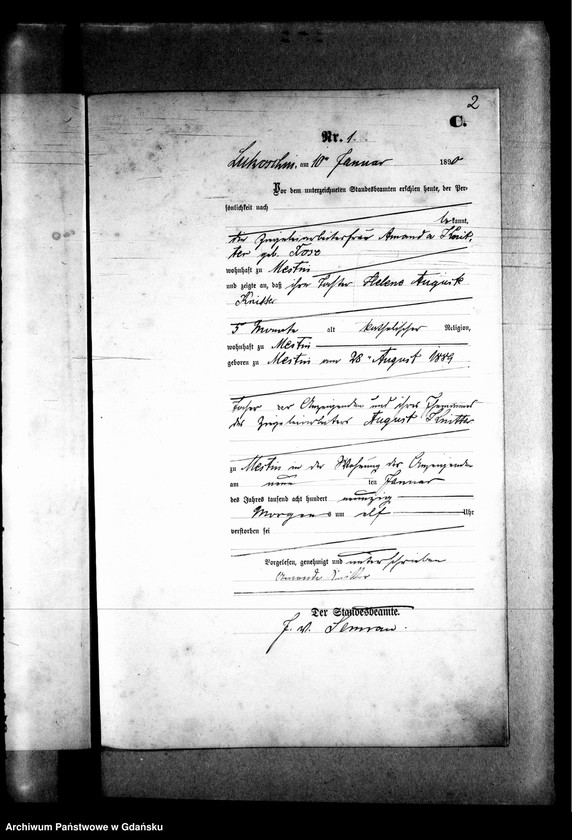 2
C.
Nr. 1.
Lukoschin, am 10ten Januar 1890
Vor dem unterzeichneten Standesbeamten erschien heute, der Per-
sönlichkeit nach
bekannt,
die Ziegeleiarbeiterfrau Amanda Knit-
ter geb.
wohnhaft zu Mestin
und zeigte an, daß ihre Tochter Helene
Knitter
5 Monate alt katholischer Religion,
wohnhaft zu Mestin
geboren zu Mestin am 28 August 1889
Tochter der Anzeigenden und ihres Ehemannes
des Ziegeleiarbeiters August Knitter
zu Mestin in der Wohnung der Anzeigenden
am neunten Januar
des Jahres tausend acht hundert neunzig
Morgens um elf Uhr
verstorben sei
Vorgelesen, genehmigt und unterschrieben
Amanda Knitter
Der Standesbeamte.
J. V.
Archiwum Państwowe w Gdańsku